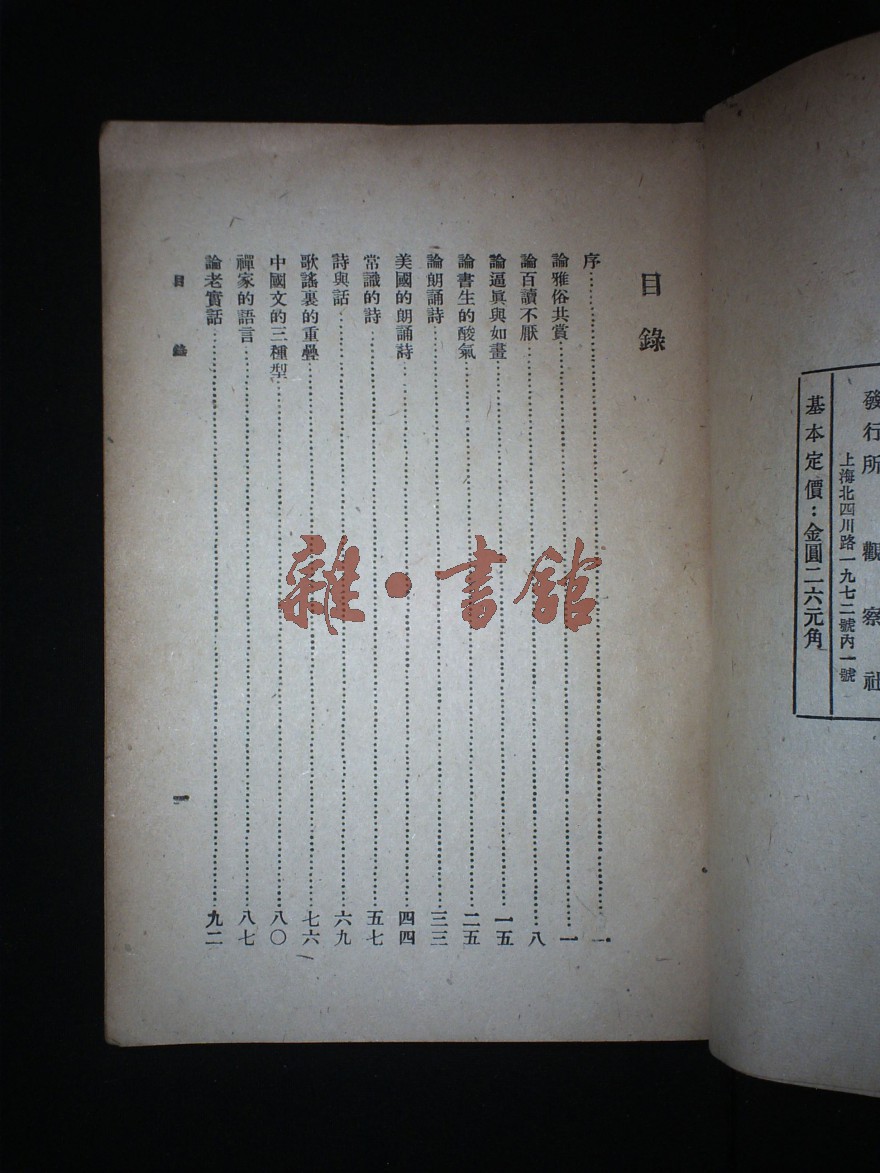 發行所 觀察社
上海北四川路一九七二號內一號
基本定價：金圓二六元角
目錄
序……一
論雅俗共賞……一
論百讀不厭……八
論逼眞與如畫……一五
論書生的酸氣……二五
論朗誦詩……三三
美國的朗誦詩……四四
常識的詩……五七
詩與話……六九
歌謠裏的重疊……七六
中國文的三種型……八〇
禪家的語言……八七
論老實話……九二
目錄
一
雜·書館